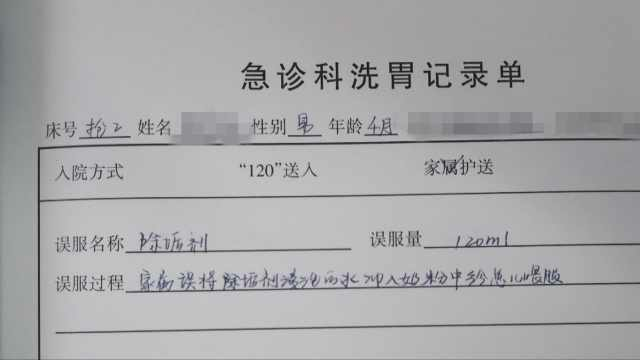 急诊科洗胃记录单
床号 抢2 姓名 性别 男 年龄 4月
入院方式 “120”送入 家属护送
误服名称 除垢剂 误服量 120ml
误服过程 家属误将除垢剂浸泡的水冲入奶粉中给患儿喂服